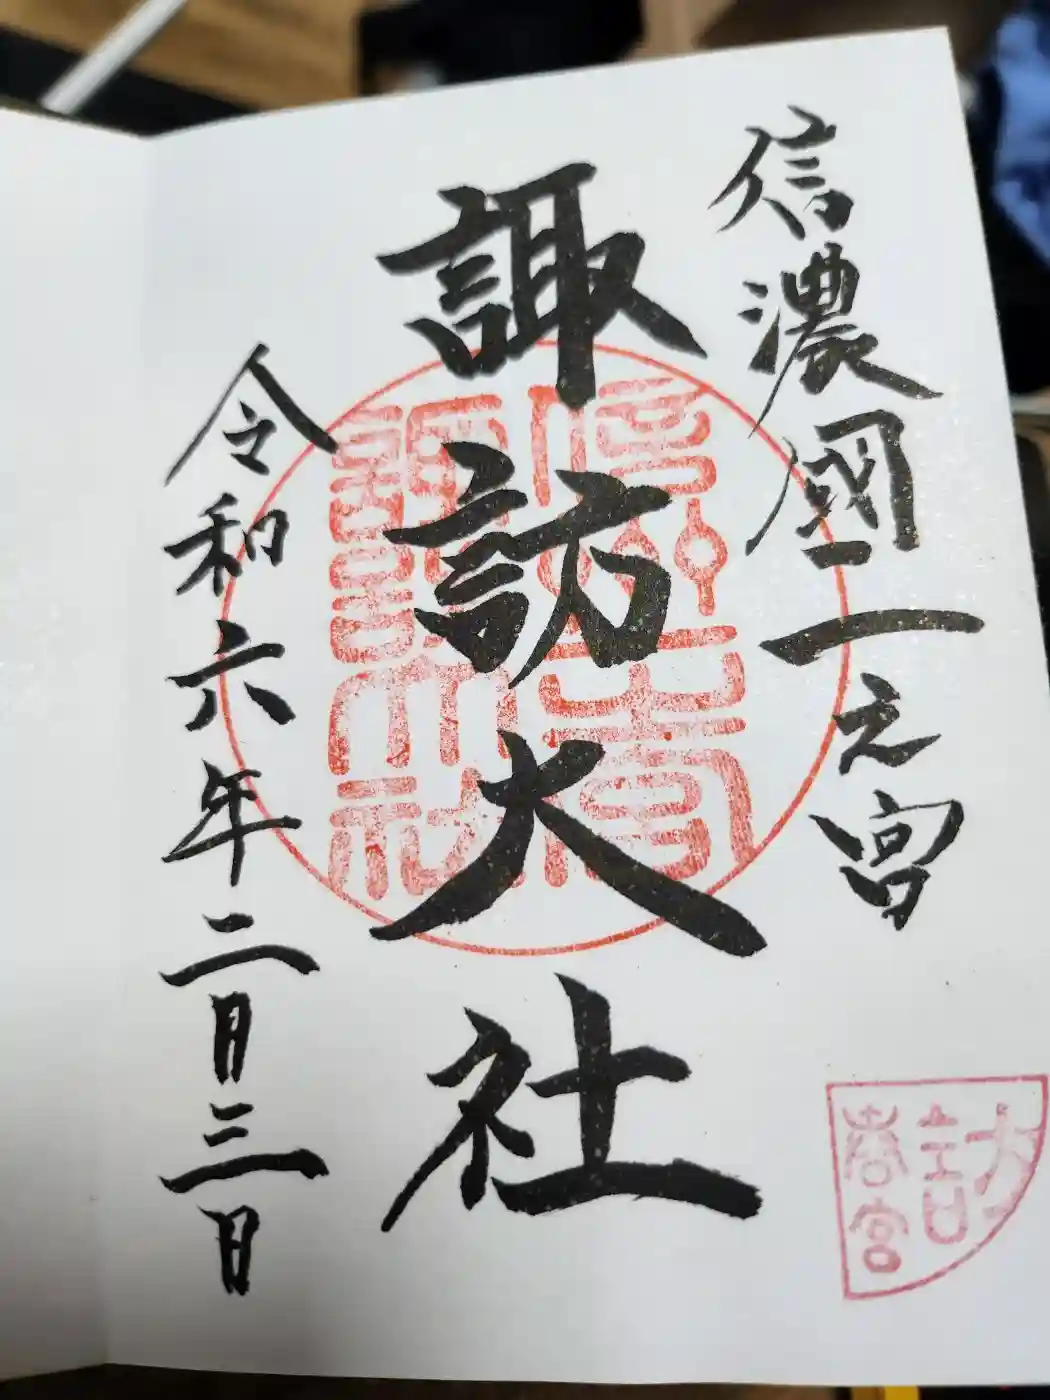 信濃國一之宮
諏訪大社
令和六年二月三日
春宮